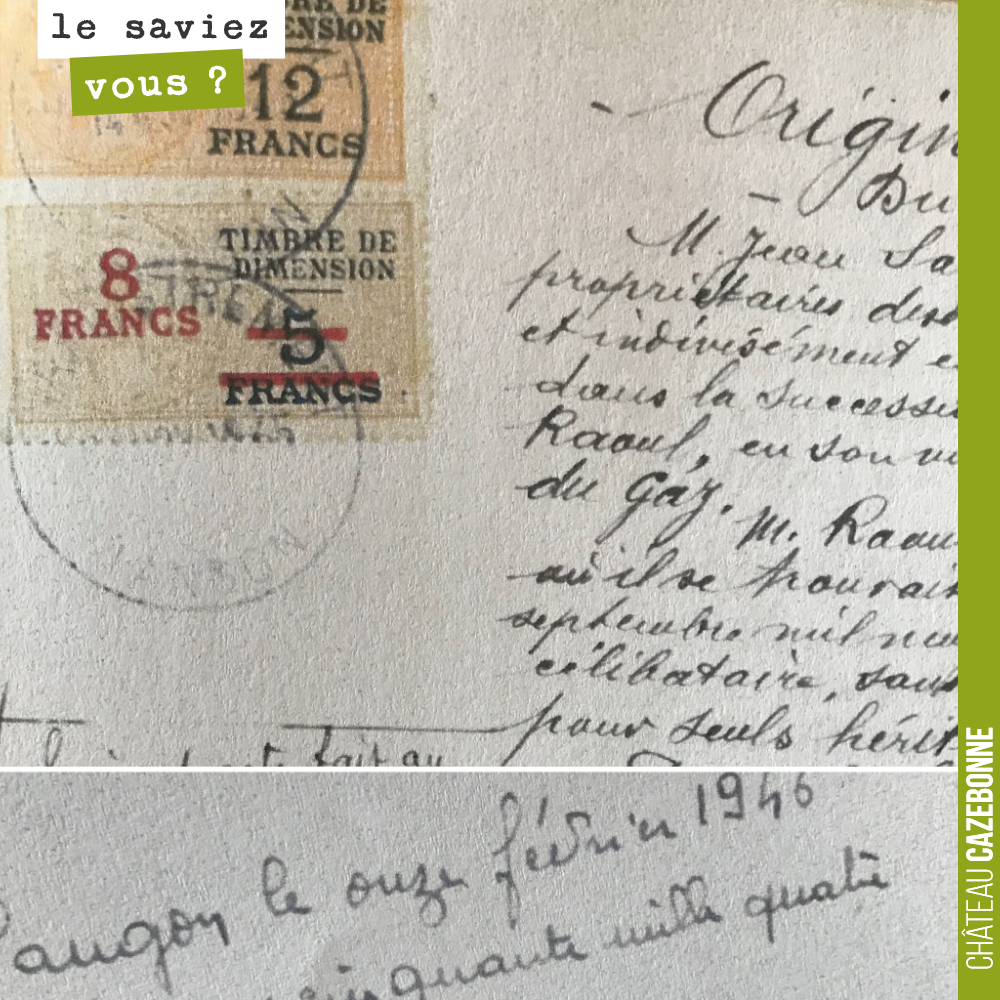 le saviez
vous ?
RE DE
ENSION
12
FRANCS
TIMBRE DE
DIMENSION
8
FRANCS
5
FRANCS
Origin
Du
M. Jean Sa
propriétaires des
et indivisément e
dans la successi
Raoul, en son
du Gaz.
M. Raou
où il se trouvait
septembre mil neu
célibataire, sans
pour seuls hérit
fait au
Langon le onze février 1946
cinquante mille quatre
CHÂTEAU CAZEBONNE